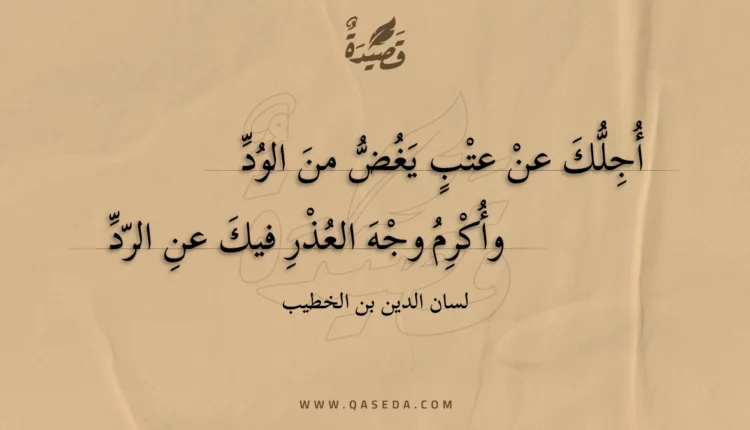 قَصِيدَةٌ
أُجِلُّكَ عنْ عتْبٍ يَغُضُّ منَ الوُدِّ
وأُكْرِمُ وجْهَ العُذْرِ فيكَ عنِ الرّدِّ
لسان الدين بن الخطيب
WWW.QASEDA.COM